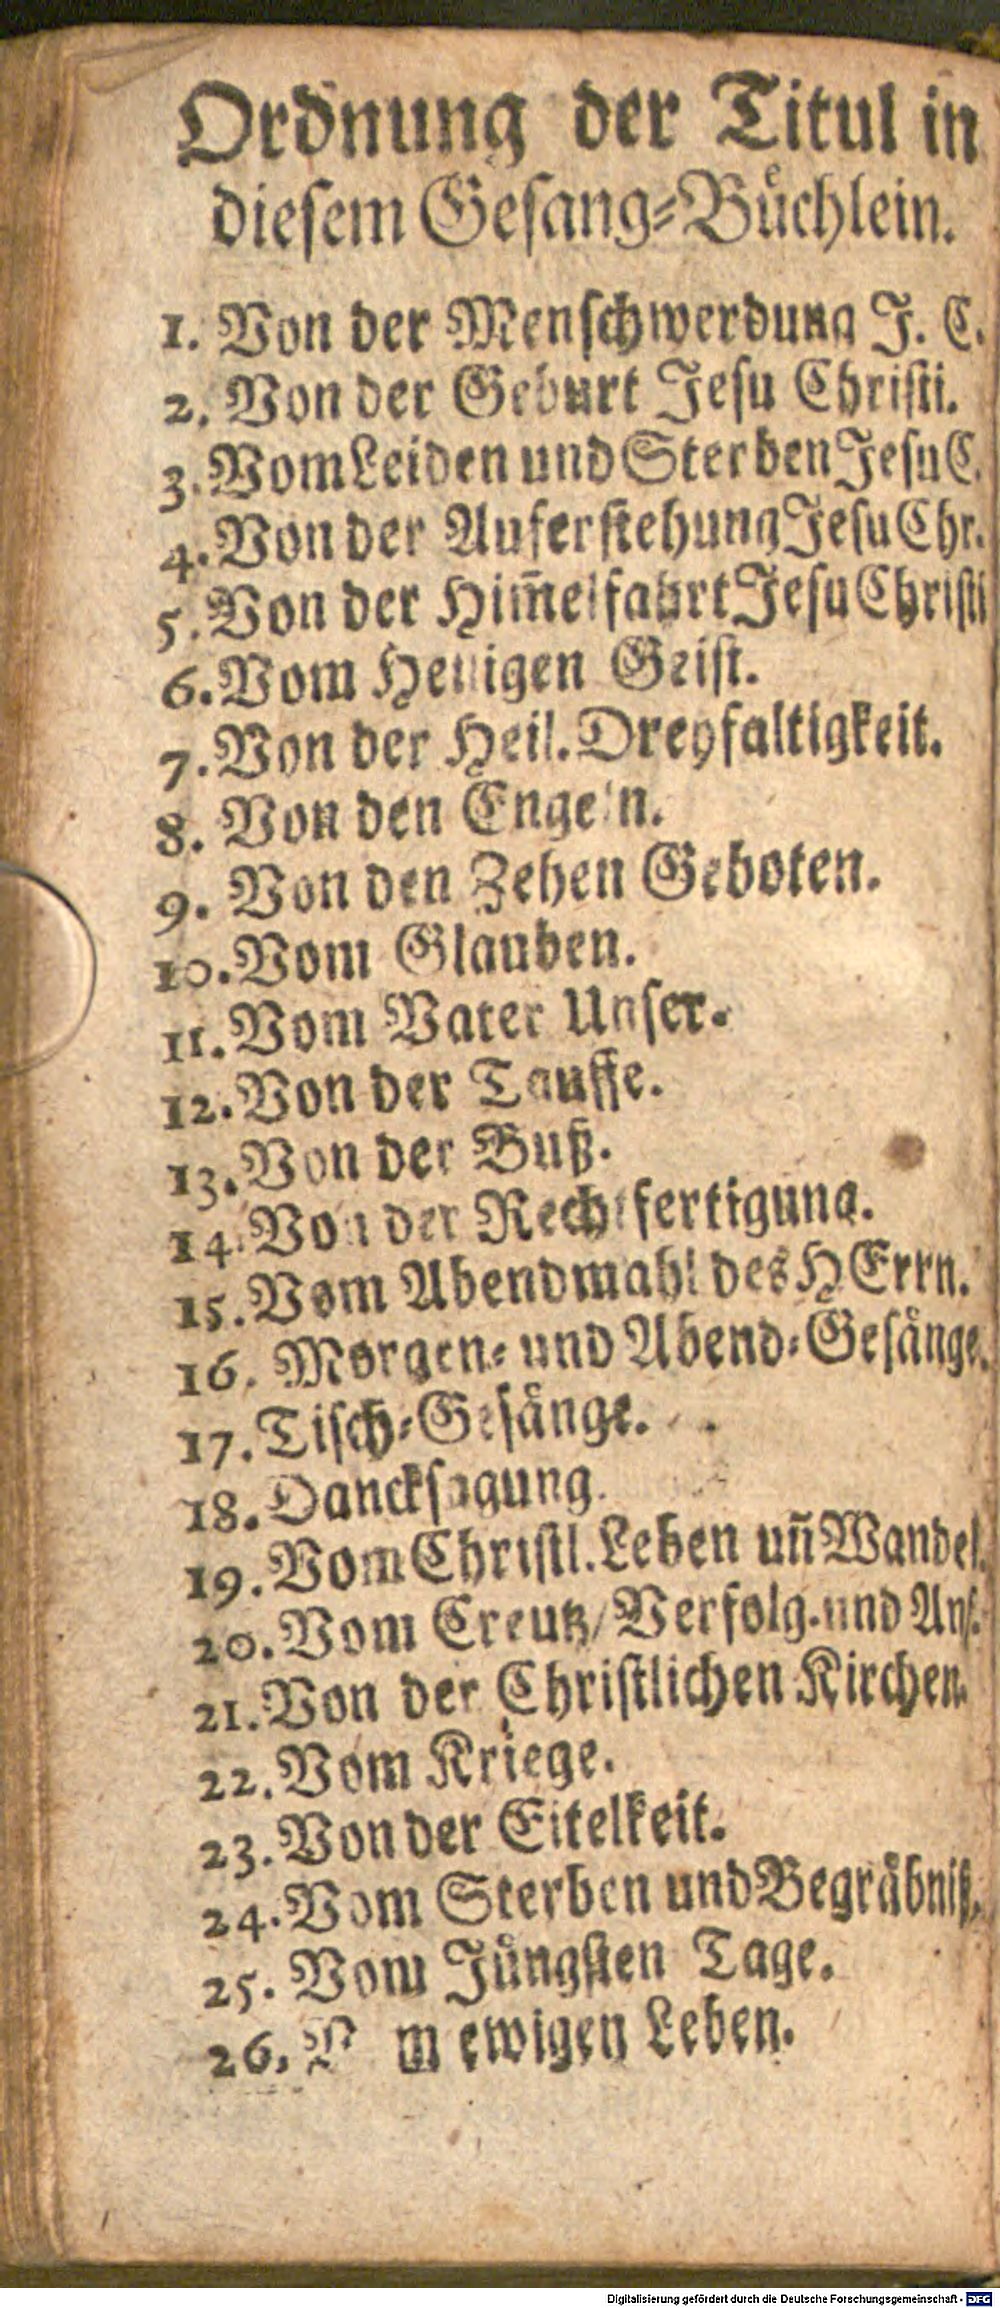 Ordnung der Titul in
diesem Gesang-Bůchlein.
1. Von der Menschwerdung J. C.
2. Von der Geburt Jesu Christi.
3. Vom Leiden und Sterben Jesu C.
4. Von der Auferstehung Jesu Chr.
5. Von der Him̄elfahrt Jesu Christi
6. Vom Heiligen Geist.
7. Von der Heil. Dreyfaltigkeit.
8. Von den Engeln.
9. Von den Zehen Geboten.
10. Vom Glauben.
11. Vom Vater Unser.
12. Von der Tauffe.
13. Von der Buß.
14. Von der Rechtfertigung.
15. Vom Abendmahl des HErrn.
16. Morgen- und Abend-Gesänge.
17. Tisch-Gesänge.
18. Dancksagung.
19. Vom Christl. Leben uñ Wandel.
20. Vom Creutz / Verfolg. und Anf.
21. Von der Christlichen Kirchen.
22. Vom Kriege.
23. Von der Eitelkeit.
24. Vom Sterben und Begråbniß.
25. Vom Jůngsten Tage.
26. V m ewigen Leben.
Digitalisierung gefördert durch die Deutsche Forschungsgemeinschaft - DFG